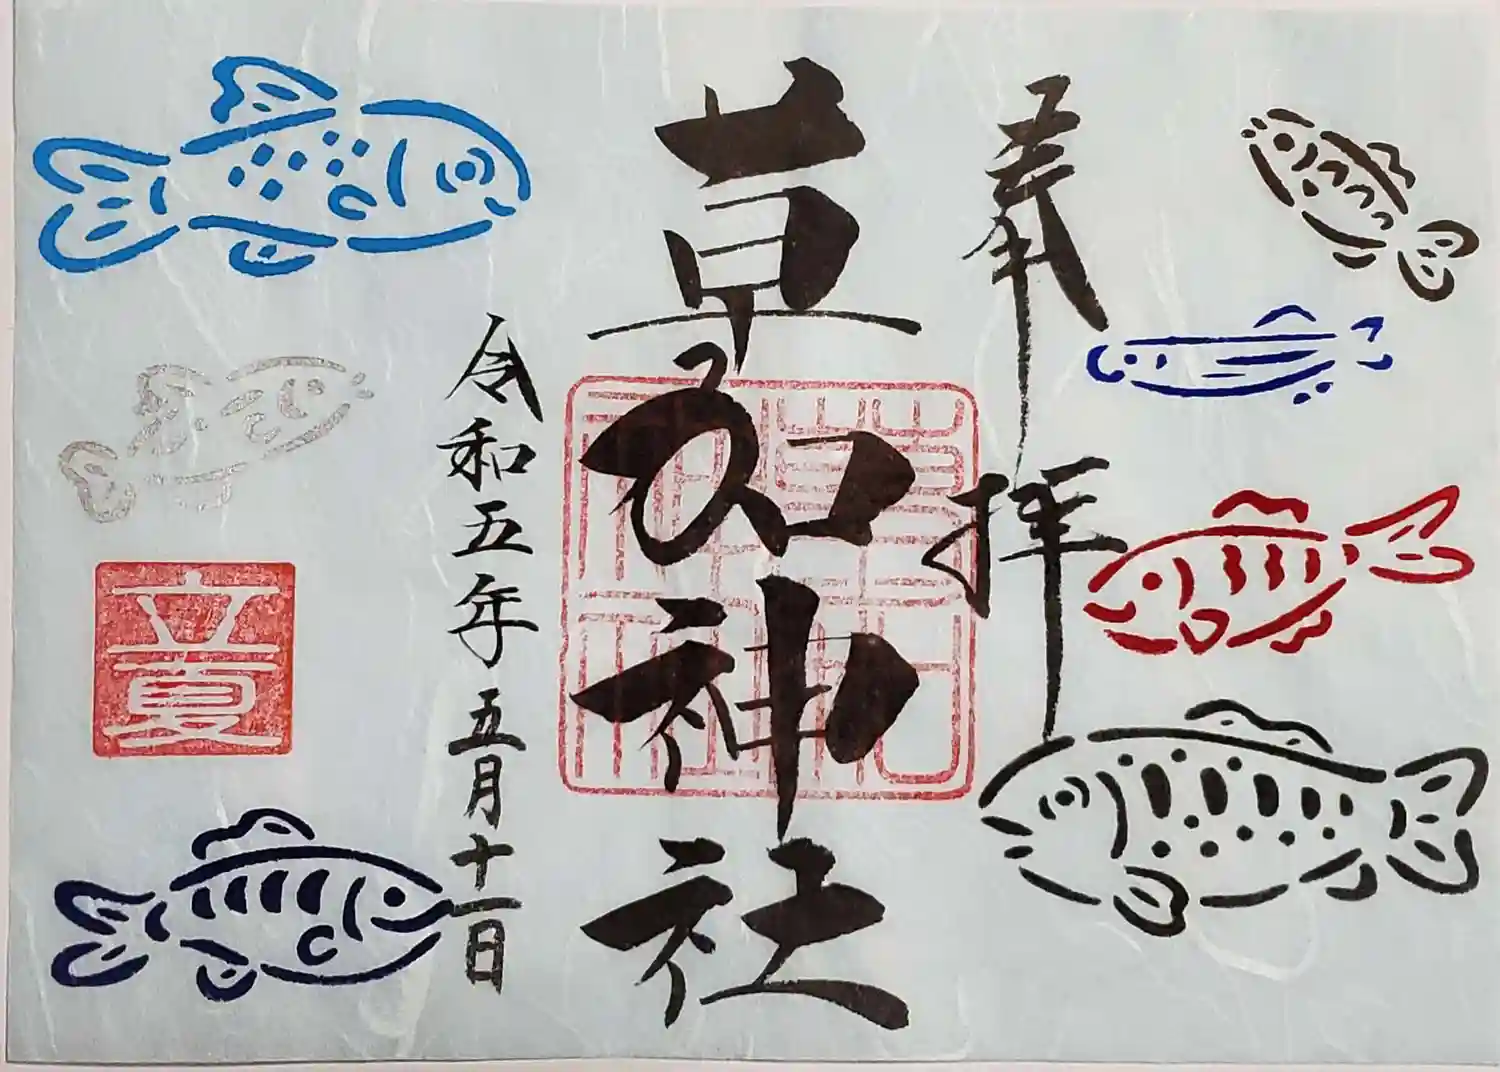 奉拝
草加神社
令和五年五月十一日
立夏